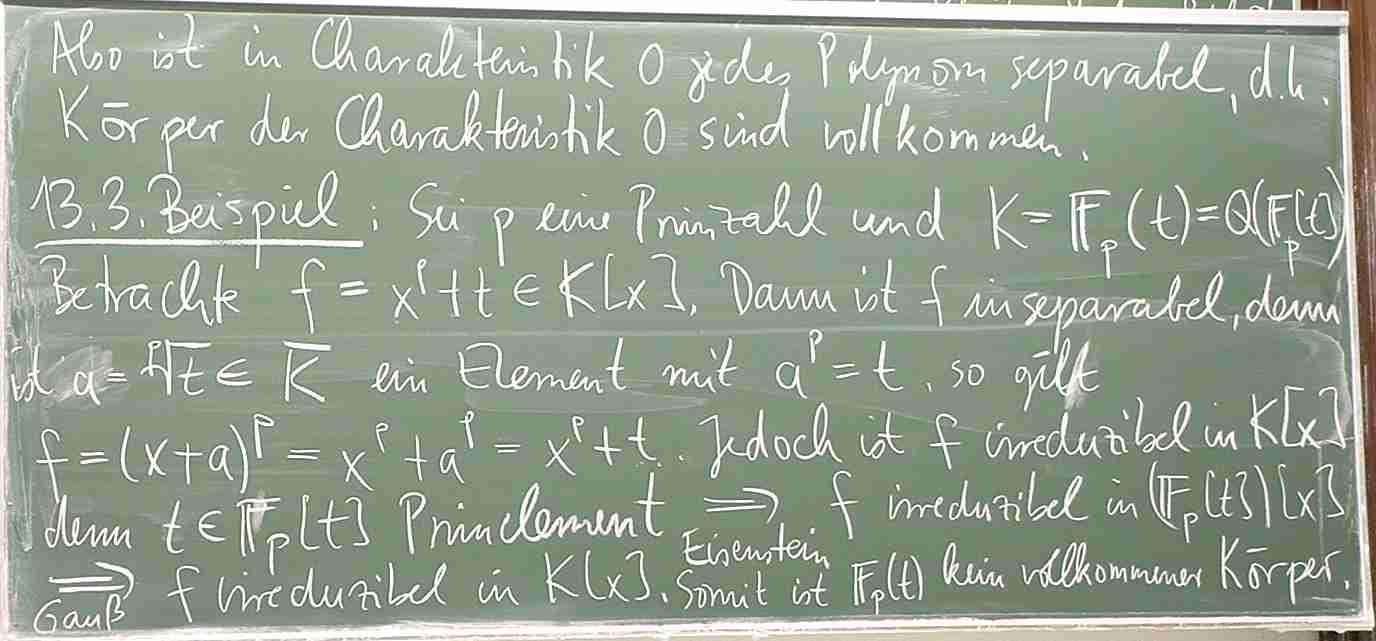 Also ist in Charakteristik 0 jedes Polynom separabel, d.h.
Körper der Charakteristik 0 sind vollkommen.
13.3. Beispiel: Sei p eine Primzahl und K = 𝔽_p(t) = Q(𝔽_p[t])
Betrachte f = x^p + t ∈ K[x]. Dann ist f inseparabel, denn
ist a = ᵖ√t ∈ K̅ ein Element mit a^p = t, so gilt
f = (x+a)^p = x^p + a^p = x^p + t. Jedoch ist f irreduzibel in K[x]
denn t ∈ 𝔽_p[t] Primelement ⟹ f irreduzibel in (𝔽_p[t])[x]
Eisenstein
⟹ f irreduzibel in K[x]. Somit ist 𝔽_p(t) kein vollkommener Körper.
Gauß